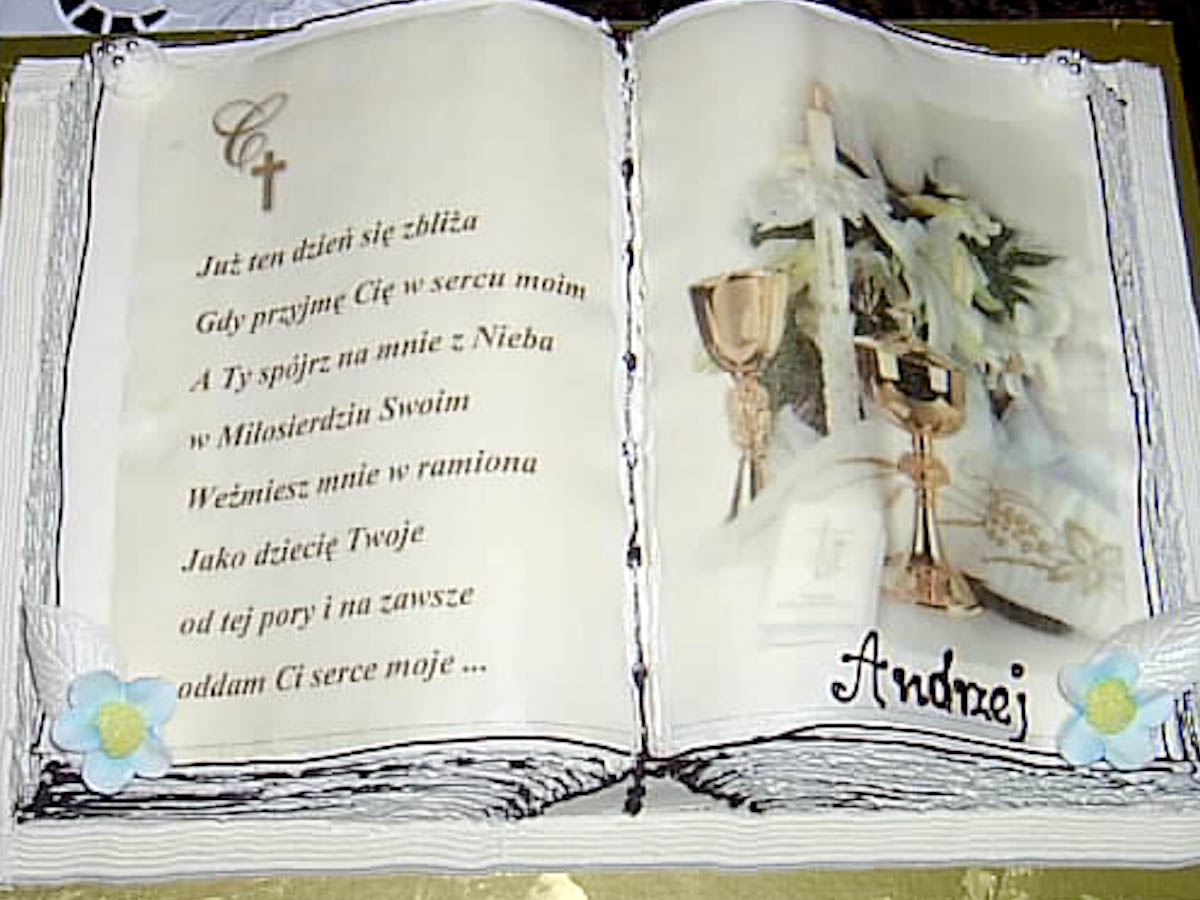 Już ten dzień się zbliża
Gdy przyjmę Cię w sercu moim
A Ty spójrz na mnie z Nieba
w Miłosierdziu Swoim
Weźmiesz mnie w ramiona
Jako dziecię Twoje
od tej pory i na zawsze
oddam Ci serce moje ...
Andrzej